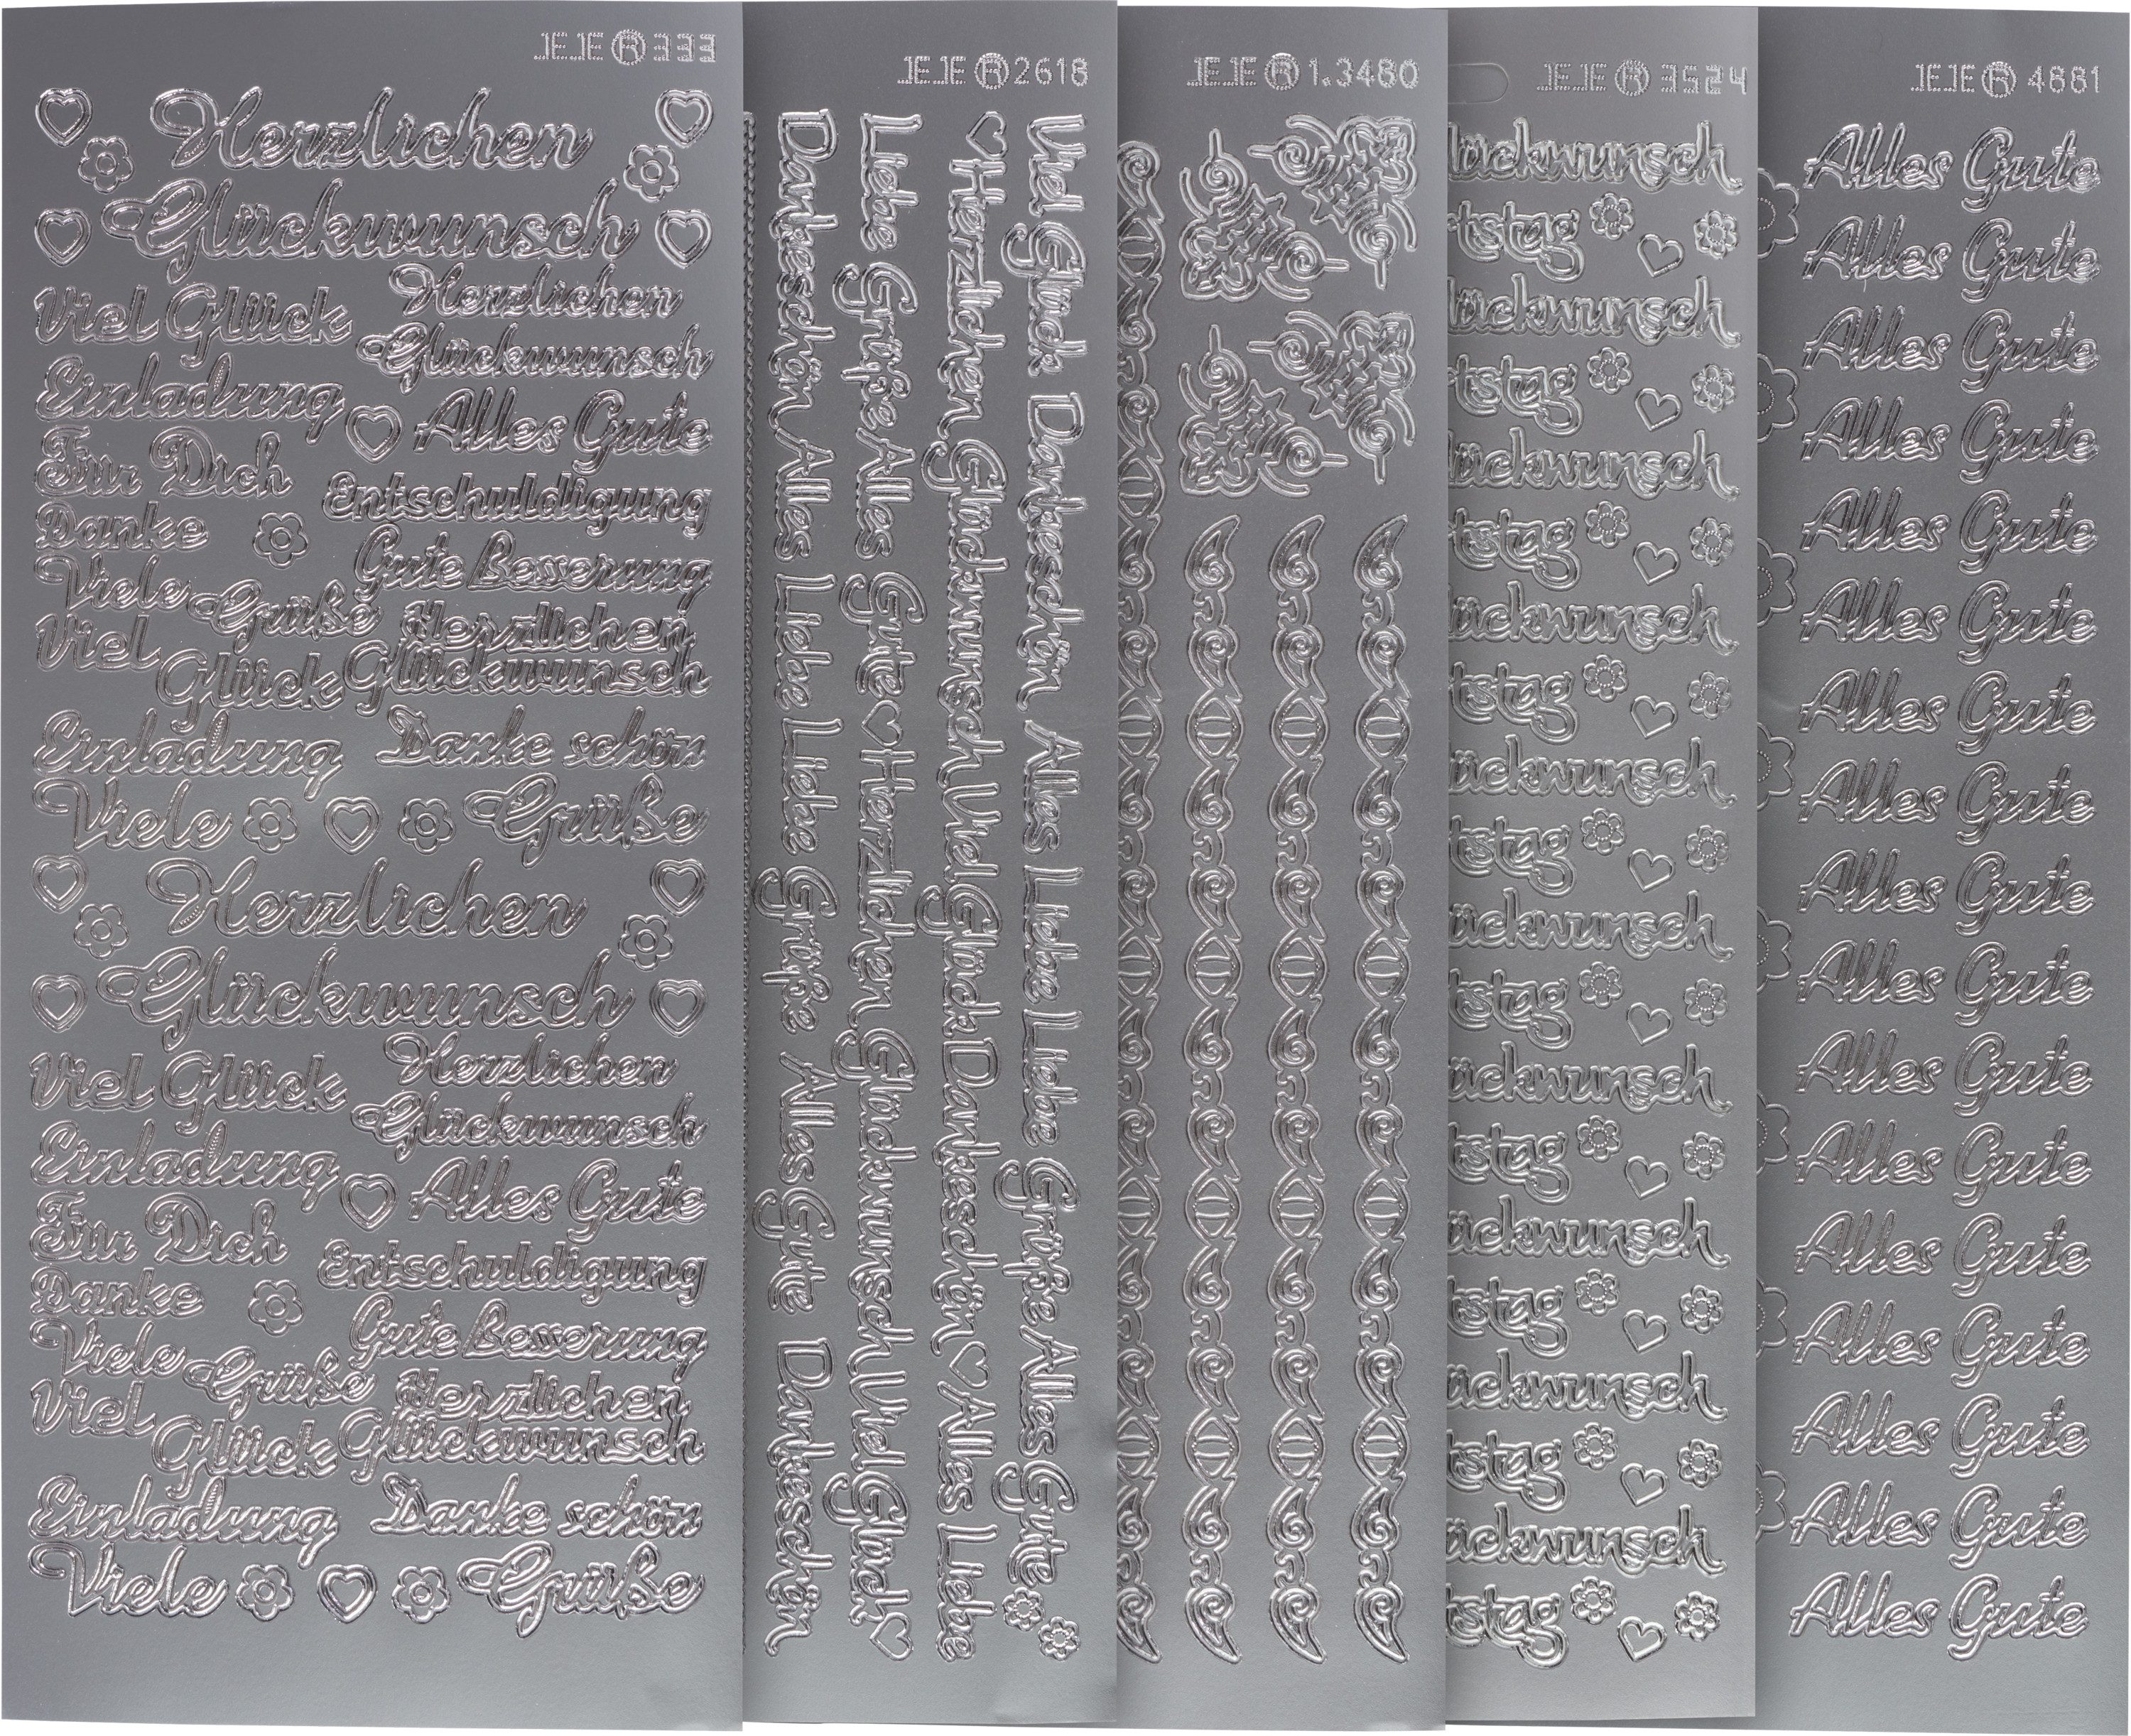 JEJE ® 333
Herzlichen
Glückwunsch
Viel Glück
Herzlichen
Glückwunsch
Einladung
Alles Gute
Für Dich
Entschuldigung
Danke
Gute Besserung
Viele Grüße
Herzlichen
Glückwunsch
Viel
Glück
Einladung
Danke schön
Viele Grüße
Herzlichen
Glückwunsch
Viel Glück
Herzlichen
Glückwunsch
Einladung
Alles Gute
Für Dich
Entschuldigung
Danke
Gute Besserung
Viele Grüße
Herzlichen
Glückwunsch
Viel
Glück
Einladung
Danke schön
Viele Grüße
JEJE ® 2618
Viel Glück Dankeschön Alles Liebe Liebe Grüße Alles Gute
Herzlichen Glückwunsch Viel Glück Dankeschön Alles Liebe
Liebe Grüße Alles Gute Herzlichen Glückwunsch Viel Glück
Dankeschön Alles Liebe Liebe Grüße Alles Gute Dankeschön
JEJE ® 1.3480
JEJE ® 3524
lückwunsch
rtstag
lückwunsch
rtstag
lückwunsch
tstag
ückwunsch
tstag
ückwunsch
tstag
ückwunsch
tstag
ückwunsch
tstag
ückwunsch
stag
ückwunsch
stag
ückwunsch
stag
JEJE ® 4881
Alles Gute
Alles Gute
Alles Gute
Alles Gute
Alles Gute
Alles Gute
Alles Gute
Alles Gute
Alles Gute
Alles Gute
Alles Gute
Alles Gute
Alles Gute
Alles Gute
Alles Gute
Alles Gute
Alles Gute